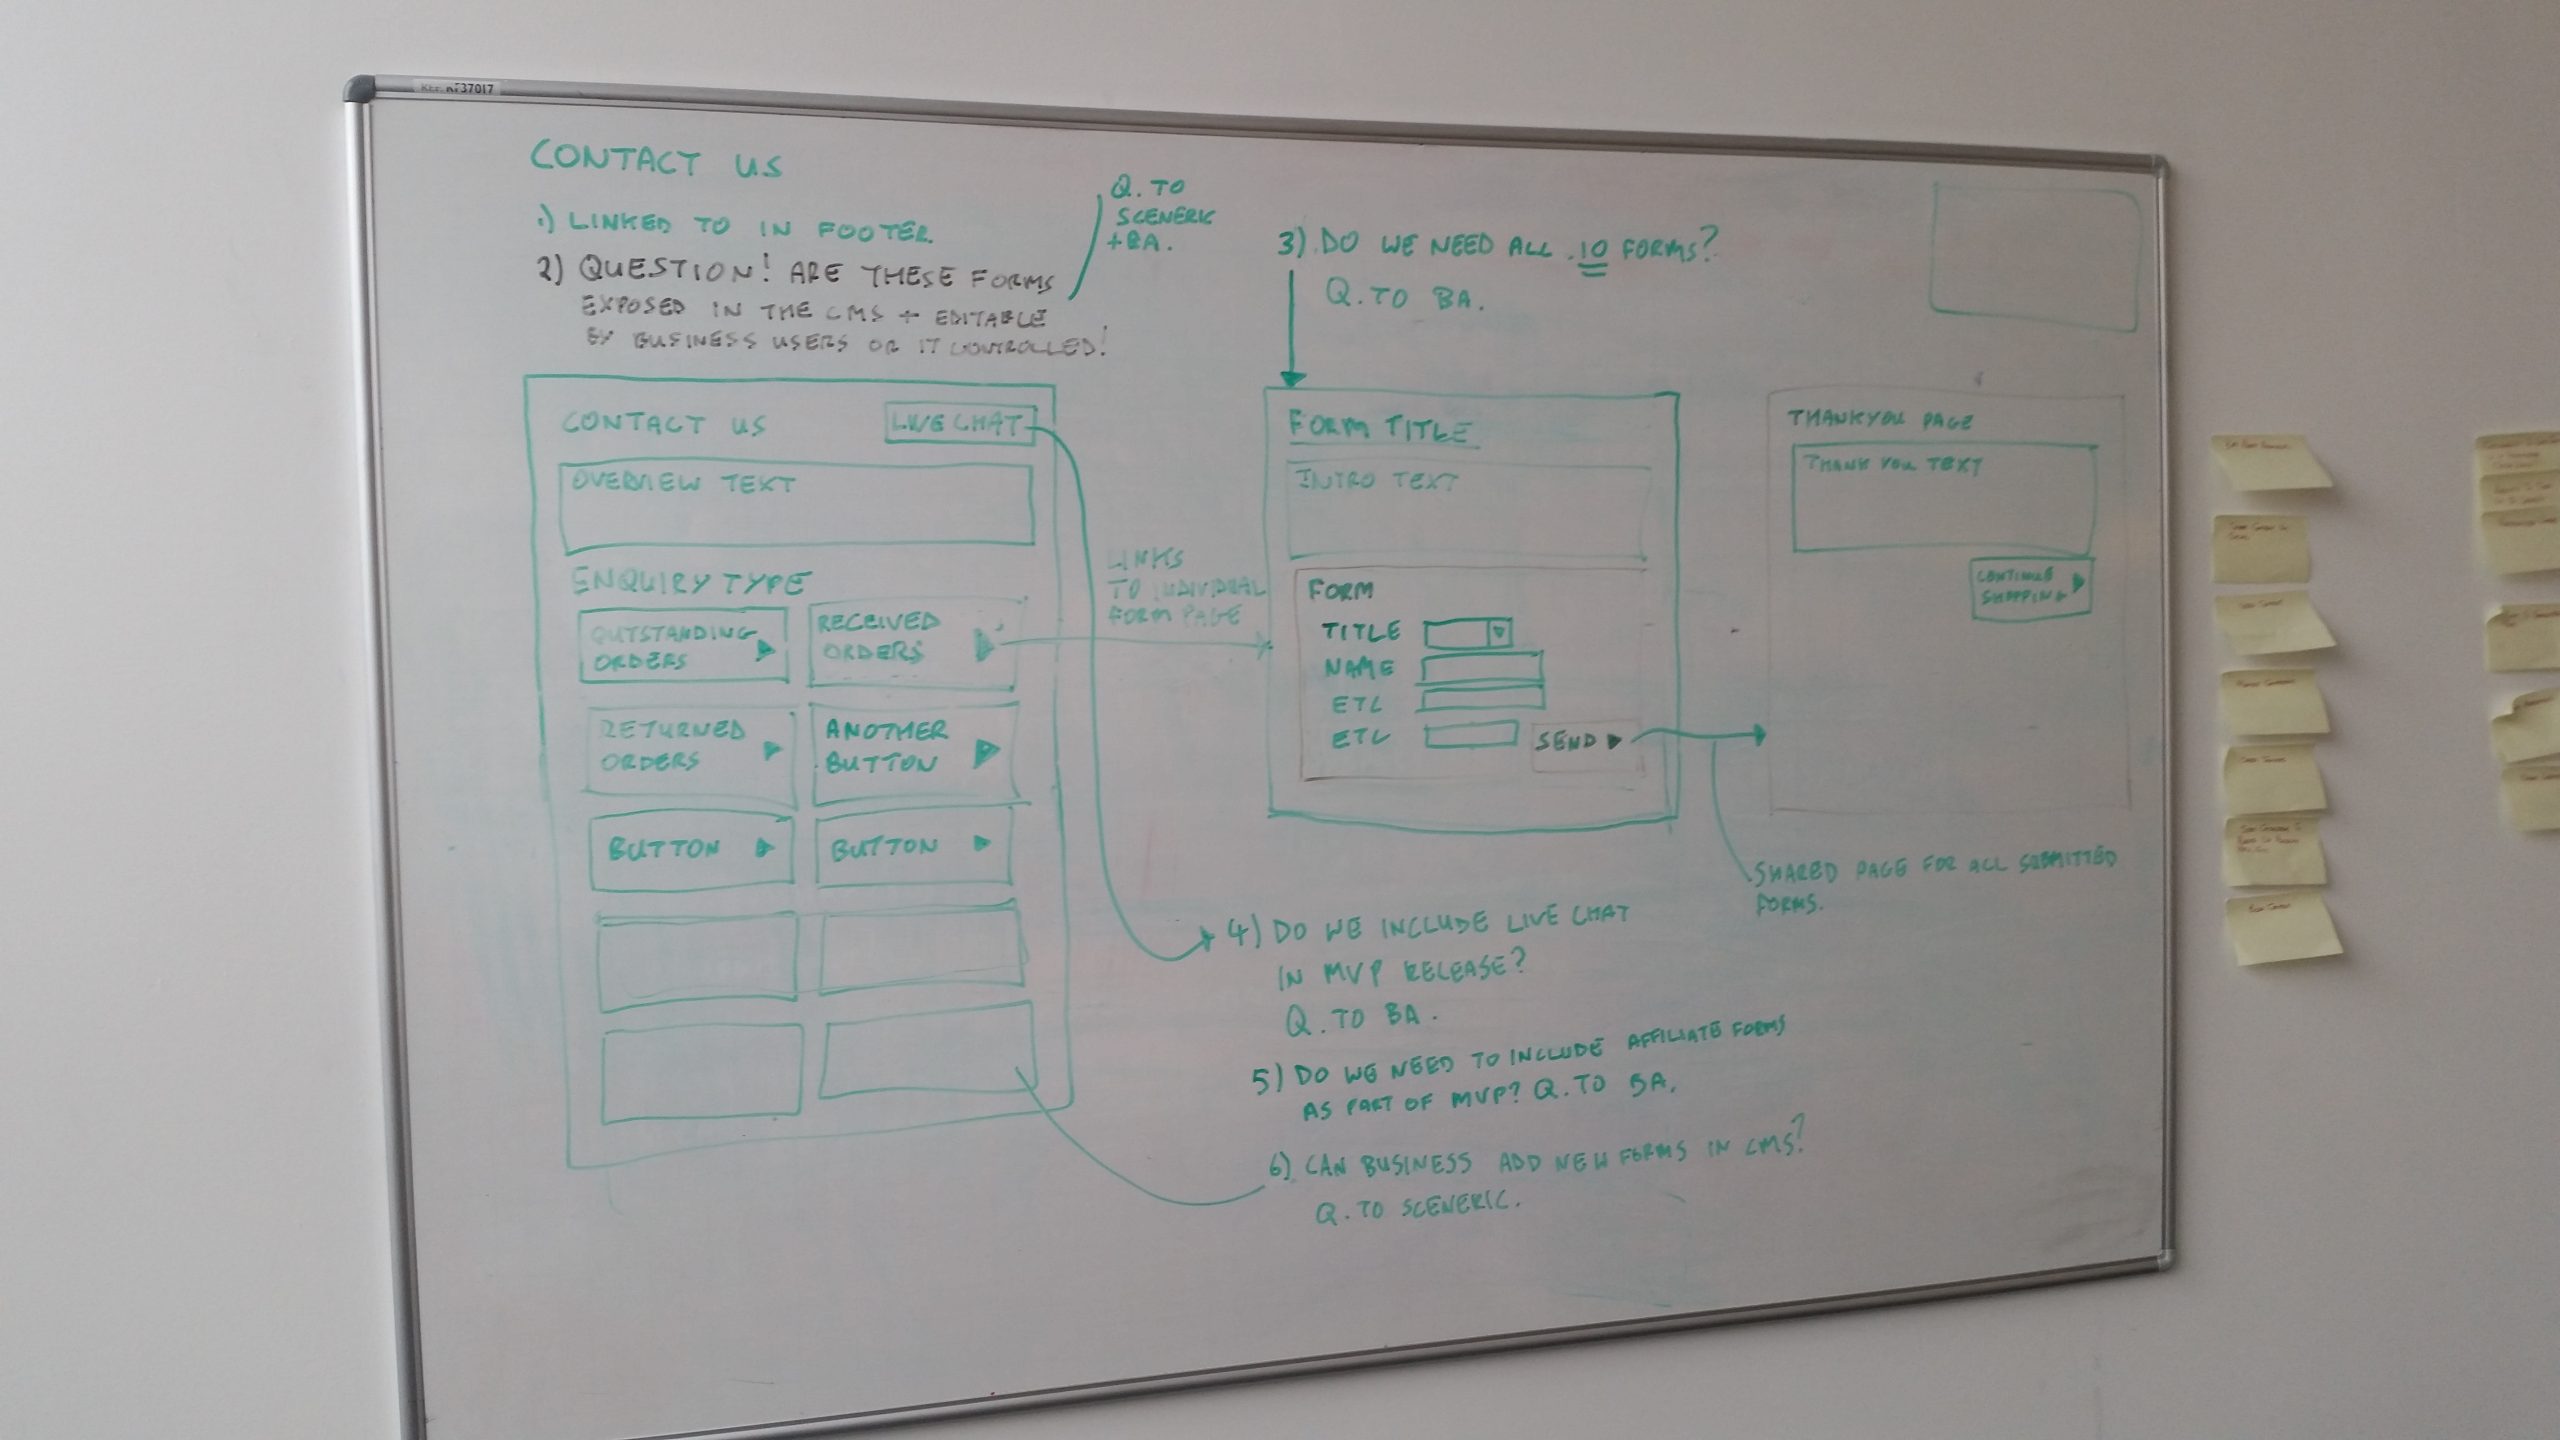 CONTACT US
1) LINKED TO IN FOOTER.
2) QUESTION! ARE THESE FORMS
EXPOSED IN THE CMS + EDITABLE
BY BUSINESS USERS OR IT CONTROLLED!
Q. TO
SCENERIC
+ BA.
3) DO WE NEED ALL 10 FORMS?
Q. TO BA.
CONTACT US
LIVE CHAT
OVERVIEW TEXT
ENQUIRY TYPE
OUTSTANDING
ORDERS
RECEIVED
ORDERS
RETURNED
ORDERS
ANOTHER
BUTTON
BUTTON
BUTTON
LINKS
TO INDIVIDUAL
FORM PAGE
FORM TITLE
INTRO TEXT
FORM
TITLE
NAME
ETC
ETC
SEND
THANKYOU PAGE
THANK YOU TEXT
CONTINUE
SHOPPING
SHARED PAGE FOR ALL SUBMITTED
FORMS.
4) DO WE INCLUDE LIVE CHAT
IN MVP RELEASE?
Q. TO BA.
5) DO WE NEED TO INCLUDE AFFILIATE FORMS
AS PART OF MVP? Q. TO BA.
6) CAN BUSINESS ADD NEW FORMS IN CMS?
Q. TO SCENERIC.